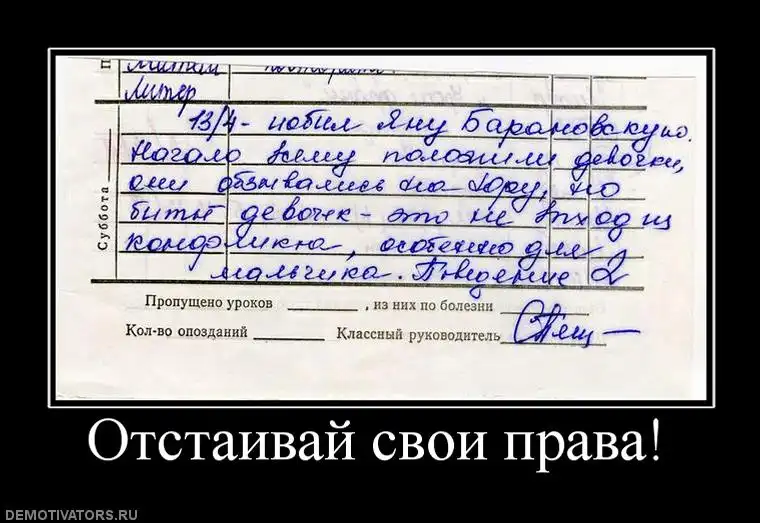 Литер
13/4 - побил Яну Барановскую.
Начало всему положили девочки,
они обзывались на Юру, но
бить девочек - это не выход из
конфликта, особенно для
мальчика. Поведение 2
Суббота
Пропущено уроков ________ , из них по болезни ________
Кол-во опозданий ________ Классный руководитель
Отстаивай свои права!
DEMOTIVATORS.RU